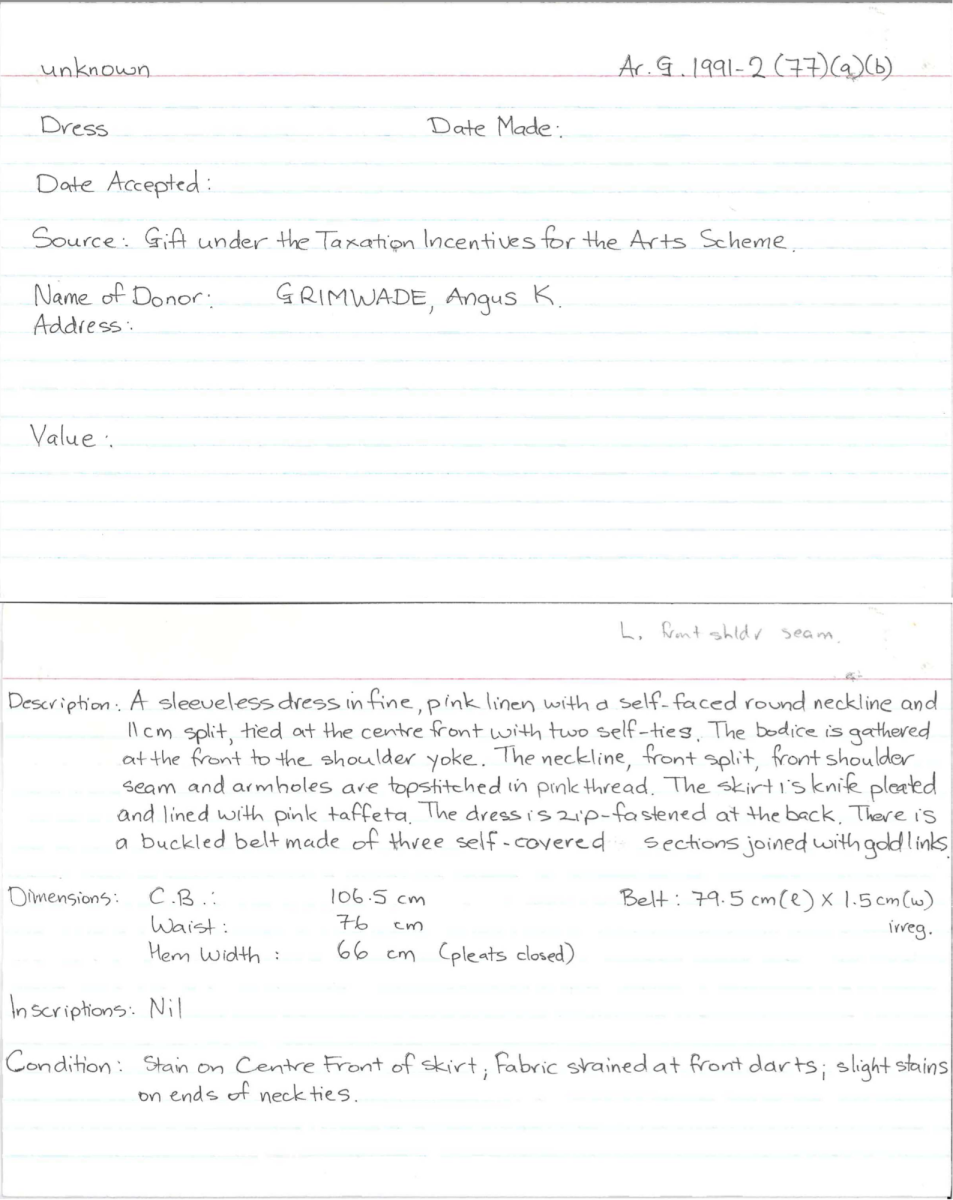 unknown Ar.G.1991-2(77)(a)(b)
Dress Date Made:
Date Accepted:
Source: Gift under the Taxation Incentives for the Arts Scheme.
Name of Donor: GRIMWADE, Angus K.
Address:
Value:
L. front shldr seam.
Description: A sleeveless dress in fine, pink linen with a self-faced round neckline and
11cm split, tied at the centre front with two self-ties. The bodice is gathered
at the front to the shoulder yoke. The neckline, front split, front shoulder
seam and armholes are topstitched in pink thread. The skirt is knife pleated
and lined with pink taffeta. The dress is zip-fastened at the back. There is
a buckled belt made of three self-covered sections joined with gold links.
Dimensions: C.B.: 106.5 cm Belt: 79.5 cm(l) X 1.5cm(w)
Waist: 76 cm irreg.
Hem Width: 66 cm (pleats closed)
Inscriptions: Nil
Condition: Stain on Centre Front of skirt; Fabric strained at front darts; slight stains
on ends of neck ties.